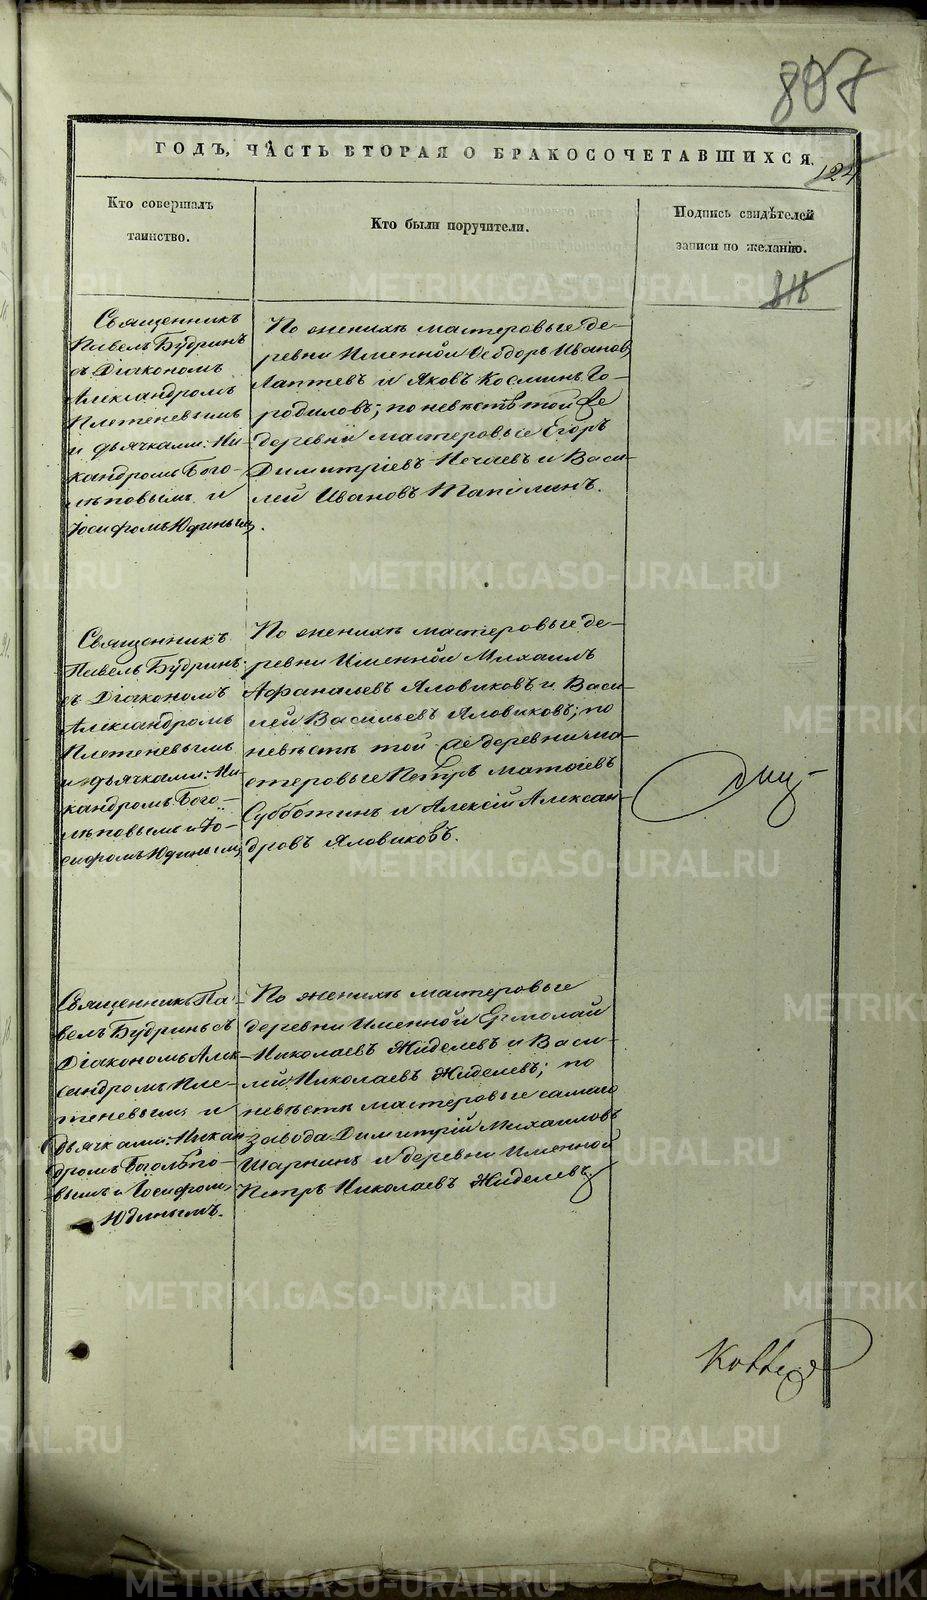 807
ГОДЪ, ЧАСТЬ ВТОРАЯ О БРАКОСОЧЕТАВШИХСЯ.
124
Кто совершалъ
таинство.
Кто были поручители.
Подпись свидѣтелей
записи по желанію.
818
Священникъ
Павелъ Будринъ
съ Діакономъ
Александромъ
Плетеневымъ
и дьячками: Ни-
кандромъ Бого-
лѣповымъ и
Іосифомъ Юдинымъ.
По женихѣ мастеровые де-
ревни Именной Ѳеодоръ Ивановъ
Лаптевъ и Яковъ Косминъ Го-
родиловъ; по невѣстѣ той же
деревни мастеровые Егоръ
Димитріевъ Нечаевъ и Васи-
лей Ивановъ
Священникъ
Павелъ Будринъ
съ Діакономъ
Александромъ
Плетеневымъ
и дьячками: Ни-
кандромъ Бого-
лѣповымъ и Іо-
сифомъ Юдинымъ
По женихѣ мастеровые де-
ревни Именной Михаилъ
Афанасьевъ Яловиковъ и Васи-
лей Васильевъ Яловиковъ; по
невѣстѣ той же деревни ма-
стеровые Петръ Матѳіевъ
Субботинъ и Алексѣй Алексан-
дровъ Яловиковъ.
Священникъ Па-
велъ Будринъ съ
Діакономъ Алек-
сандромъ Пле-
теневымъ и
дьячками: Никан
дромъ Боголѣпо-
вымъ и Іосифомъ
Юдинымъ.
По женихѣ мастеровые
деревни Именной Ермолай
Николаевъ Жиделевъ и Васи-
лей Николаевъ Жиделевъ; по
невѣстѣ мастеровые самаго
завода Димитрій Михаиловъ
Шарнинъ и деревни Именной
Петръ Николаевъ Жиделевъ.
METRIKI.GASO-URAL.RU